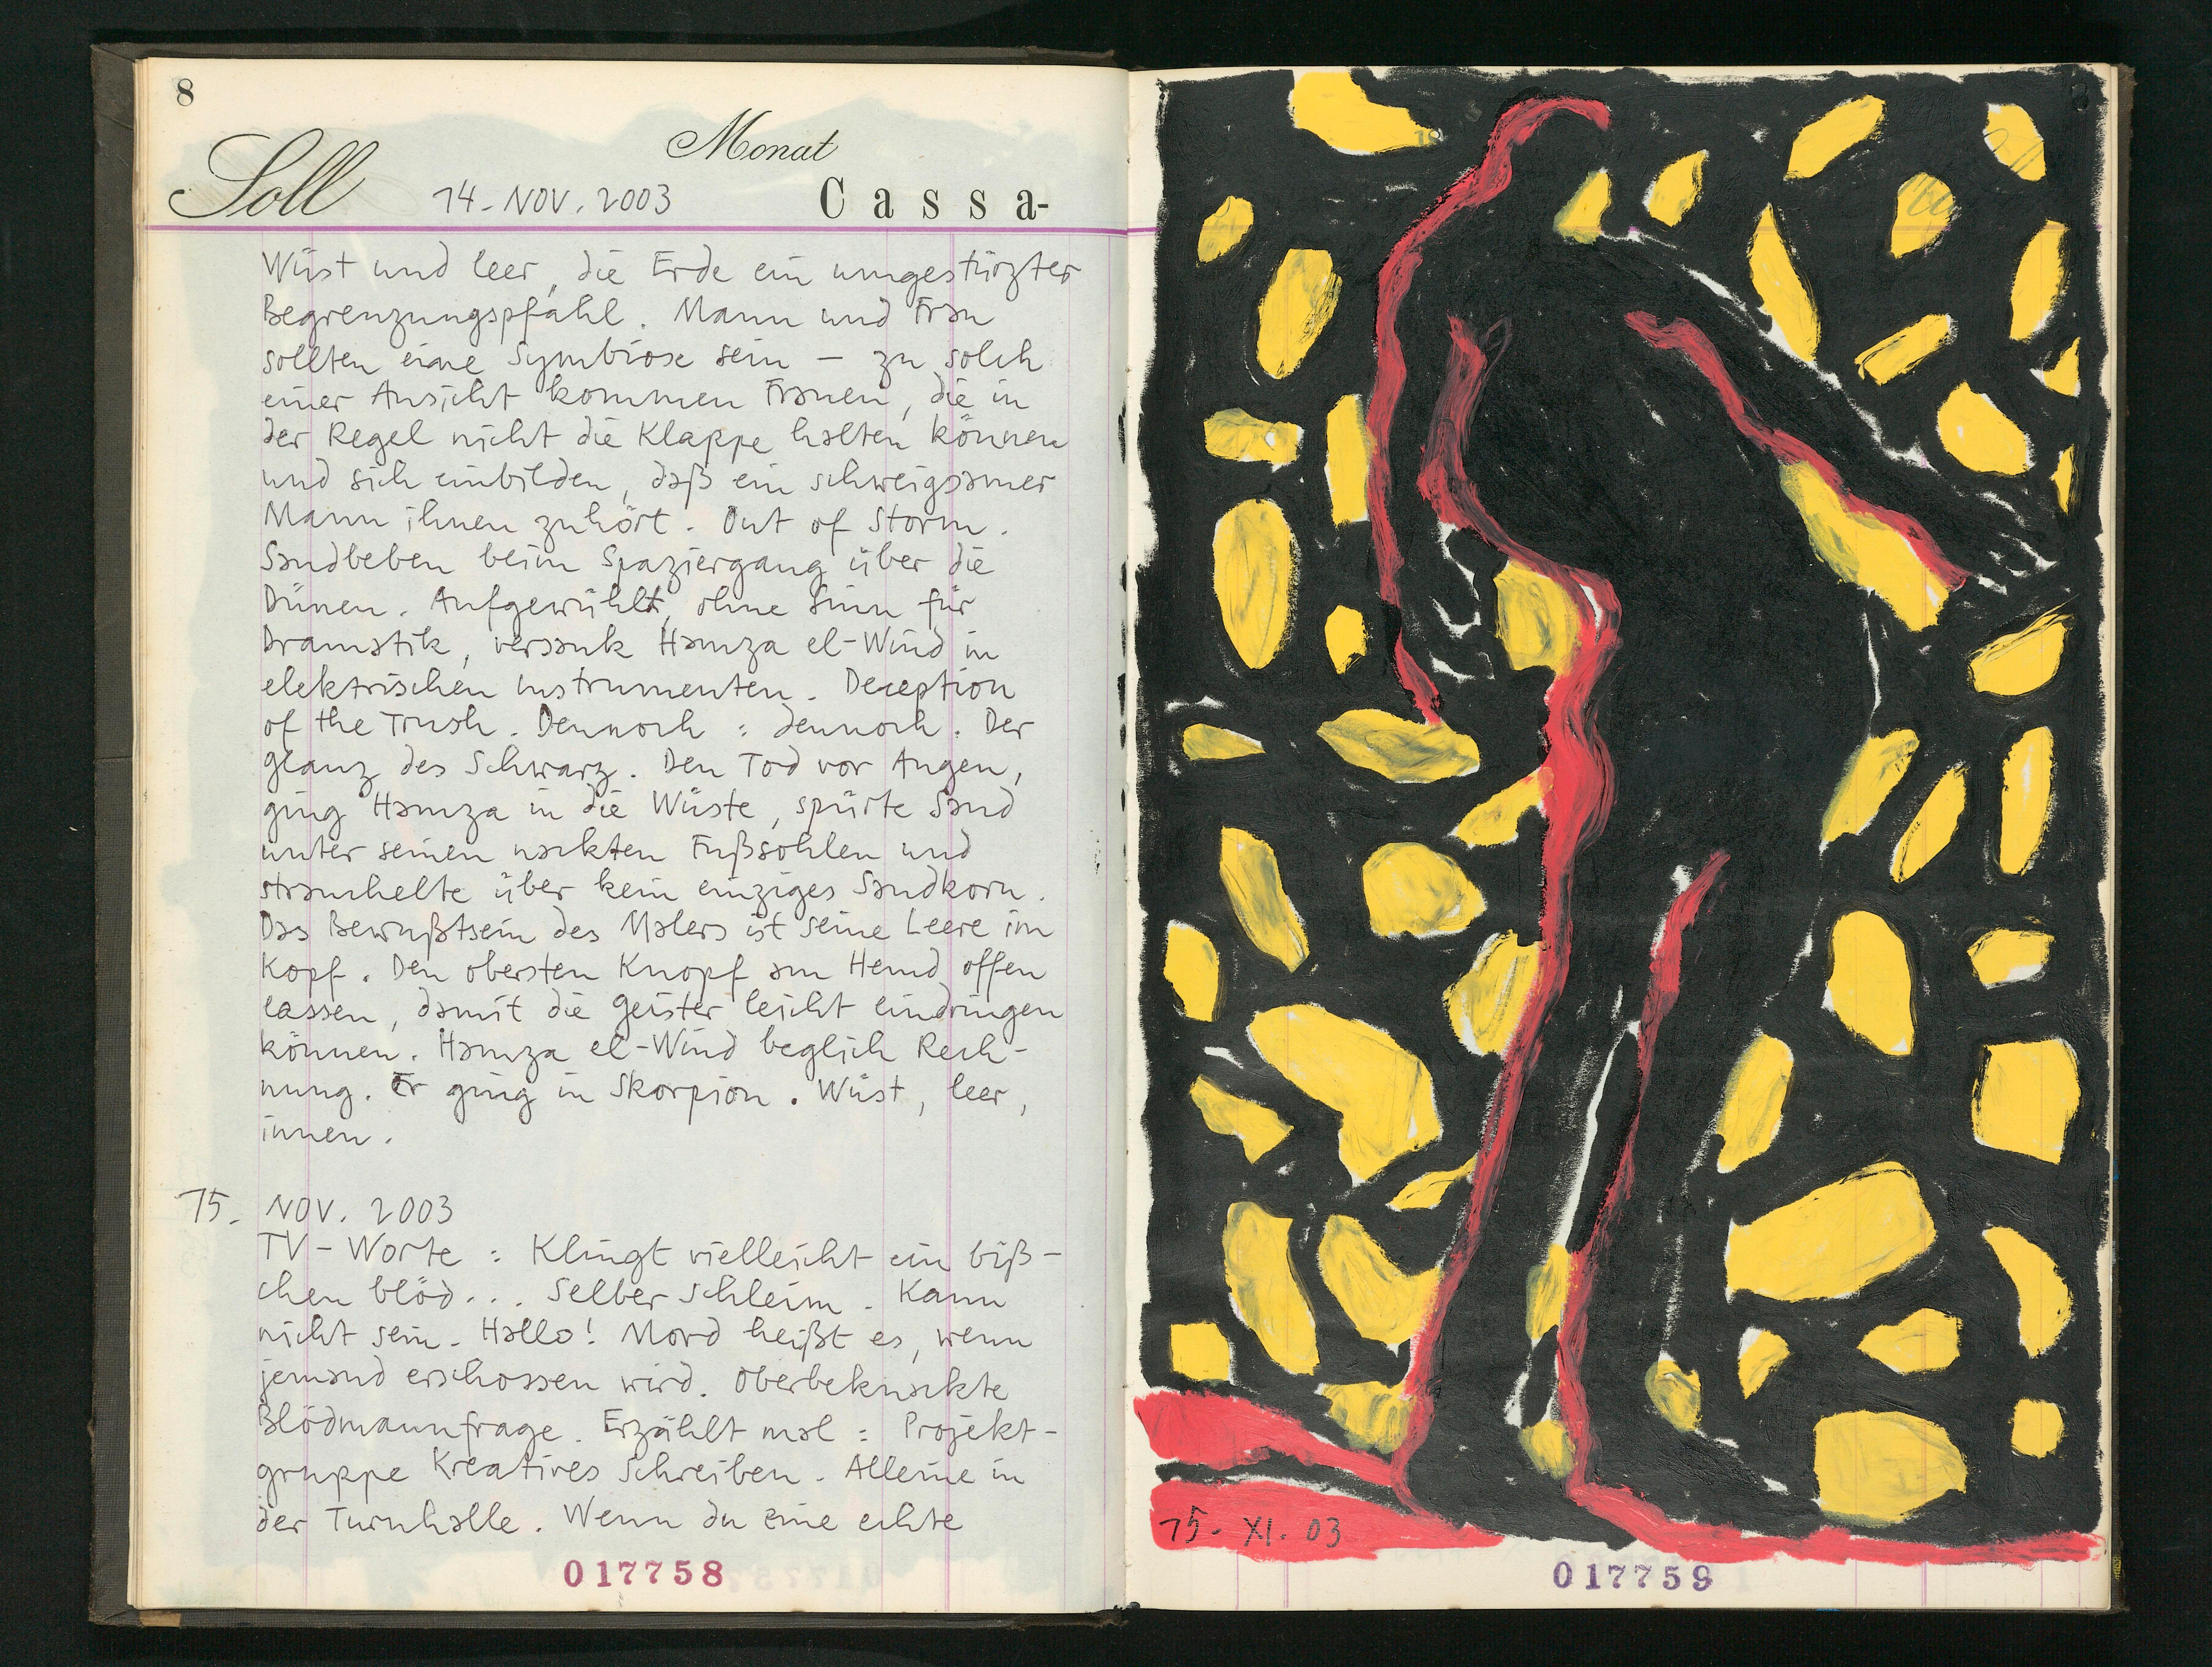 8
Monat
Soll 14. NOV. 2003 Cassa-
Wüst und leer, die Erde ein umgestürzter
Begrenzungspfahl. Mann und Frau
sollten eine Symbiose sein – zu solch
einer Ansicht kommen Frauen, die in
der Regel nicht die Klappe halten können
und sich einbilden, daß ein schweigsamer
Mann ihnen zuhört. Out of Storm.
Sandbeben beim Spaziergang über die
Dünen. Aufgewühlt, ohne Sinn für
Dramatik, versank Hamza el-Wind in
elektrischen Instrumenten. Deception
of the Trush. Dennoch : dennoch. Der
Glanz des Schwarz. Den Tod vor Augen,
ging Hamza in die Wüste, spürte Sand
unter seinen nackten Fußsohlen und
strauchelte über kein einziges Sandkorn.
Das Bewußtsein des Malers ist seine Leere im
Kopf. Den obersten Knopf am Hemd offen
lassen, damit die Geister leicht eindringen
können. Hamza el-Wind beglich Rech-
nung. Er ging in Skorpion. Wüst, leer,
innen.
15. NOV. 2003
TV-Worte : Klingt vielleicht ein biß-
chen blöd... Selber Schleim. Kann
nicht sein. Hallo! Mord heißt es, wenn
jemand erschossen wird. Oberbeknackte
Blödmannfrage. Erzählt mal : Projekt-
gruppe Kreatives Schreiben. Alleine in
der Turnhalle. Wenn du eine echte
017758
15. XI. 03
017759